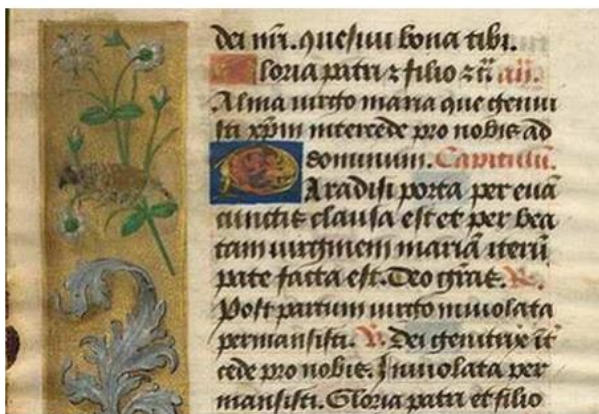 dei nr̄i. quesiui bona tibi.
Gloria patri ⁊ filio ⁊ t̄i añ.
Alma uirgo maria que genui
sti xp̄m intercede pro nobis ad
dominum. Capitulū.
Paradisi porta per euā
cunctis clausa est et per bea
tam uirginem mariā iterū
pate facta est. Deo grās. R.
Post partum uirgo inuiolata
permansisti. V. Dei genitrix īt
cede pro nobis. Inuiolata per
mansisti. Gloria patri et filio